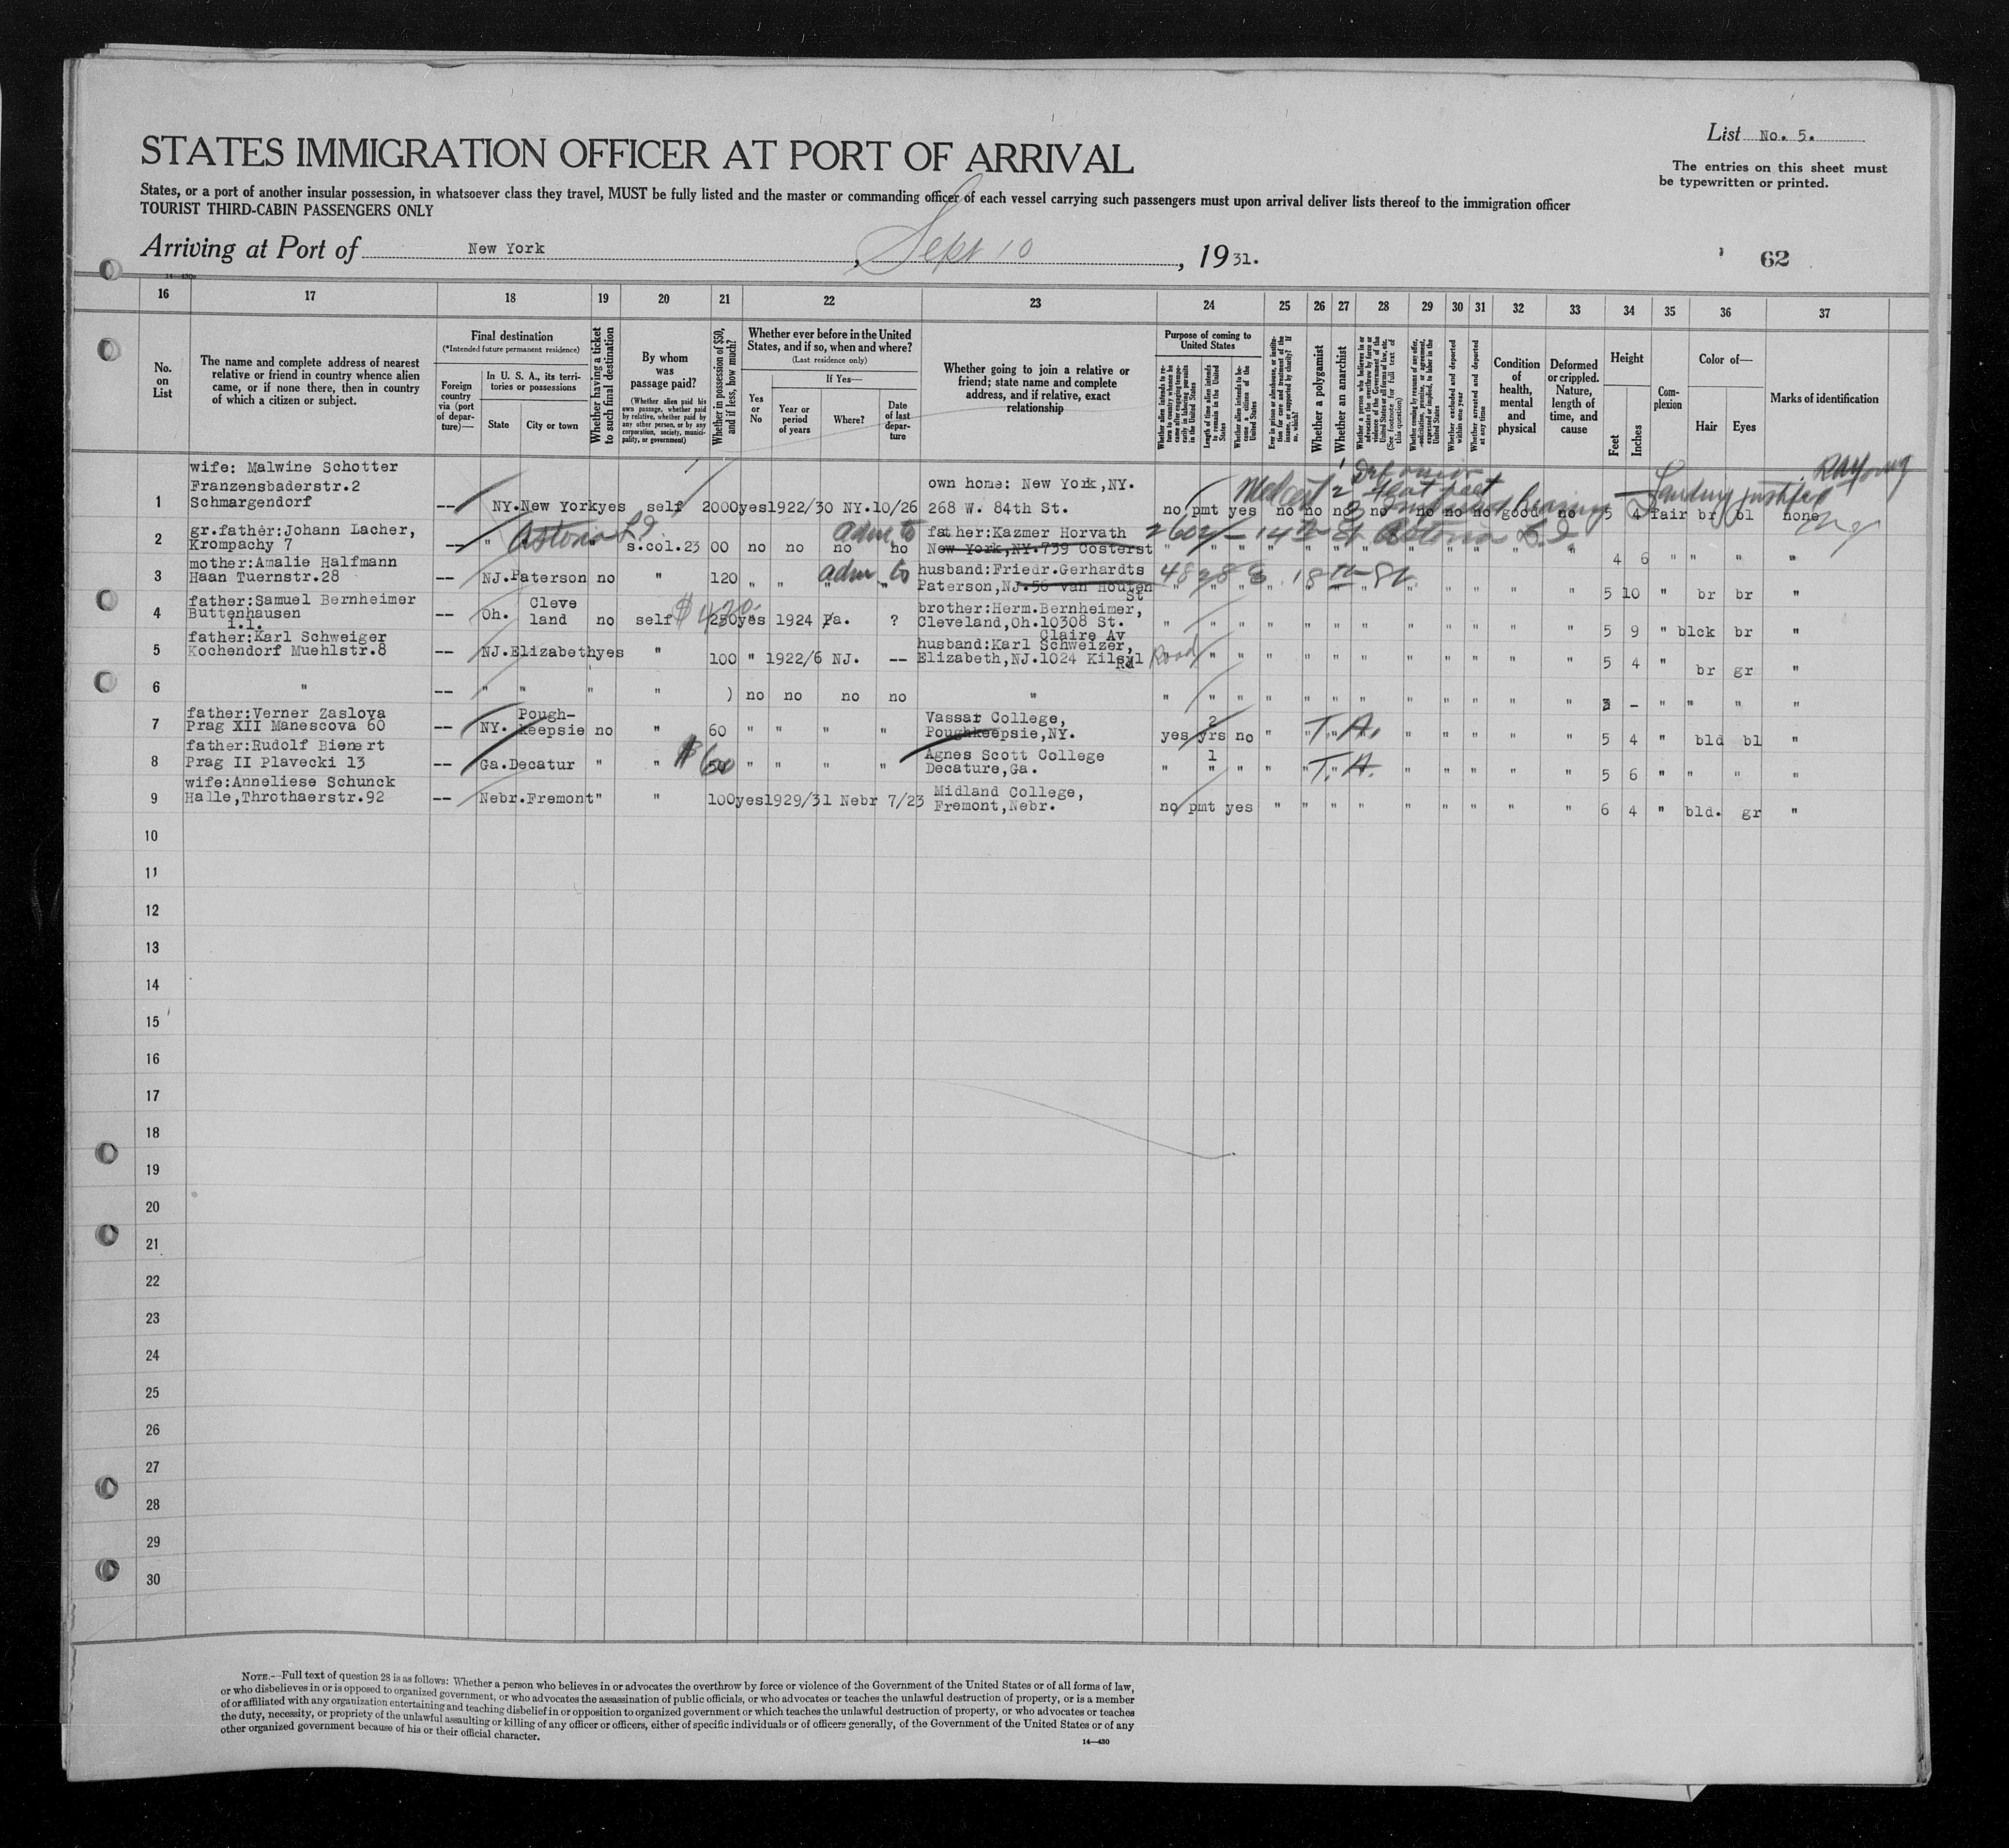 List No. 5.
STATES IMMIGRATION OFFICER AT PORT OF ARRIVAL
The entries on this sheet must
be typewritten or printed.
States, or a port of another insular possession, in whatsoever class they travel, MUST be fully listed and the master or commanding officer of each vessel carrying such passengers must upon arrival deliver lists thereof to the immigration officer
TOURIST THIRD-CABIN PASSENGERS ONLY
Arriving at Port of New York, Sept 10, 1931.
62
14—430
16 17 18 19 20 21 22 23 24 25 26 27 28 29 30 31 32 33 34 35 36 37
No. on List
The name and complete address of nearest relative or friend in country whence alien came, or if none there, then in country of which a citizen or subject.
Final destination
(*Intended future permanent residence)
Foreign country via (port of departure)—
In U. S. A., its territories or possessions
State
City or town
Whether having a ticket to such final destination
By whom was passage paid?
(Whether alien paid his own passage, whether paid by relative, whether paid by any other person, or by any corporation, society, municipality, or government)
Whether in possession of $50, and if less, how much?
Whether ever before in the United States, and if so, when and where?
(Last residence only)
Yes or No
If Yes—
Year or period of years
Where?
Date of last departure
Whether going to join a relative or friend; state name and complete address, and if relative, exact relationship
Purpose of coming to United States
Whether alien intends to return to country whence he came after engaging temporarily in laboring pursuits in the United States
Length of time alien intends to remain in the United States
Whether alien intends to become a citizen of the United States
Ever in prison or almshouse, or institution for care and treatment of the insane, or supported by charity? If so, which?
Whether a polygamist
Whether an anarchist
Whether a person who believes in or advocates the overthrow by force or violence of the Government of the United States or all forms of law, etc. (See footnote for full text of this question)
Whether coming by reason of any offer, solicitation, promise, or agreement, expressed or implied, to labor in the United States
Whether excluded and deported within one year
Whether arrested and deported at any time
Condition of health, mental and physical
Deformed or crippled. Nature, length of time, and cause
Height
Feet
Inches
Complexion
Color of—
Hair
Eyes
Marks of identification
Med cert
2 flat feet
3 impaired hearing
Landing justified
RA Young
wife: Malwine Schotter
Franzensbaderstr.2
1 Schmargendorf -- NY. New York yes self 2000 yes 1922/30 NY. 10/26 own home: New York, NY.
268 W. 84th St. no pmt yes no no no no no no no good no 5 4 fair br bl none
gr.father: Johann Lacher,
2 Krompachy 7 -- " " " s.col. 23 00 no no no no father: Kazmer Horvath
New York, NY. 739 Costerst " " " " " " " " " " " " 4 6 " " " "
Astoria L.I. adm to 2602 - 14th St Astoria L.I.
mother: Amalie Halfmann
3 Haan Tuernstr.28 -- NJ. Paterson no " 120 " " " " husband: Friedr. Gerhardts
Paterson, NJ. 56 Van Houten St " " " " " " " " " " " " 5 10 " br br "
adm to 18th St.
father: Samuel Bernheimer
4 Buttenhausen -- Oh. Cleveland no self 250 yes 1924 Pa. ? brother: Herm. Bernheimer,
Cleveland, Oh. 10308 St. Claire Av " " " " " " " " " " " " 5 9 " blck br "
$420
i.l.
father: Karl Schweiger
5 Kochendorf Muehlstr.8 -- NJ. Elizabeth yes " 100 " 1922/6 NJ. -- husband: Karl Schweizer,
Elizabeth, NJ. 1024 Kilsyl Rd Road " " " " " " " " " " " 5 4 " br gr "
6 " -- " " " " ) no no no no " " " " " " " " " " " " " - " " " "
father: Verner Zaslova
7 Prag XII Manescova 60 -- NY. Pough-keepsie no " 60 " " " " Vassar College,
Poughkeepsie, NY. yes 2 yrs no " " " " " " " " " 5 4 " bld bl "
T.A.
father: Rudolf Bienert
8 Prag II Plavecki 13 -- Ga. Decatur " " 50 " " " " Agnes Scott College
Decature, Ga. " 1 " " " " " " " " " " " 5 6 " " " "
$60 T.A.
wife: Anneliese Schunck
9 Halle, Throthaerstr.92 -- Nebr. Fremont " " 100 yes 1929/31 Nebr 7/23 Midland College,
Fremont, Nebr. no pmt yes " " " " " " " " " 6 4 " bld. gr "
10
11
12
13
14
15
16
17
18
19
20
21
22
23
24
25
26
27
28
29
30
NOTE.—Full text of question 28 is as follows: Whether a person who believes in or advocates the overthrow by force or violence of the Government of the United States or of all forms of law,
or who disbelieves in or is opposed to organized government, or who advocates the assassination of public officials, or who advocates or teaches the unlawful destruction of property, or is a member
of or affiliated with any organization entertaining and teaching disbelief in or opposition to organized government or which teaches the unlawful destruction of property, or who advocates or teaches
the duty, necessity, or propriety of the unlawful assaulting or killing of any officer or officers, either of specific individuals or of officers generally, of the Government of the United States or of any
other organized government because of his or their official character.
14—430